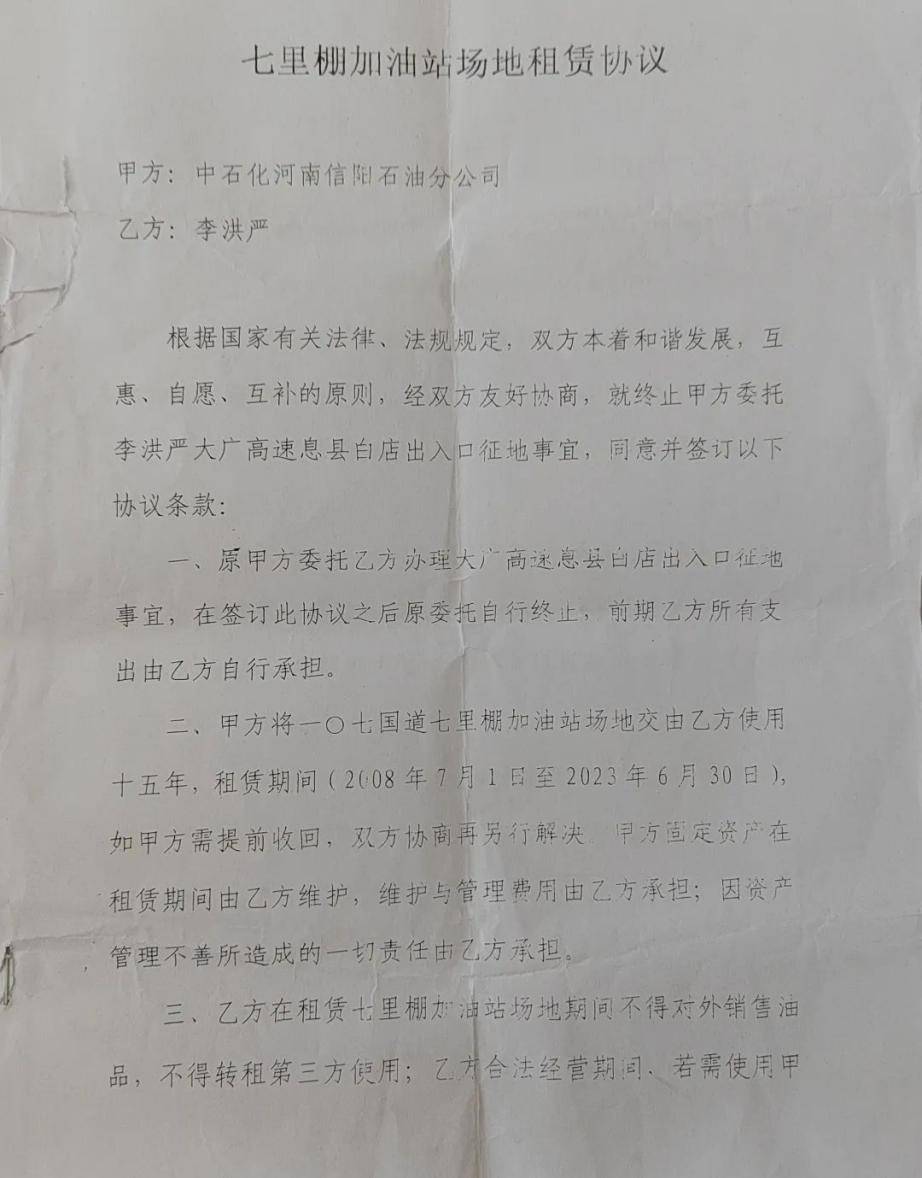 七里棚加油站场地租赁协议
甲方：中石化河南信阳石油分公司
乙方：李洪严
根据国家有关法律、法规规定，双方本着和谐发展，互
惠、自愿、互补的原则，经双方友好协商，就终止甲方委托
李洪严大广高速息县白店出入口征地事宜，同意并签订以下
协议条款：
一、原甲方委托乙方办理大广高速息县白店出入口征地
事宜，在签订此协议之后原委托自行终止，前期乙方所有支
出由乙方自行承担。
二、甲方将一〇七国道七里棚加油站场地交由乙方使用
十五年，租赁期间（2008年7月1日至2023年6月30日），
如甲方需提前收回，双方协商再另行解决。甲方固定资产在
租赁期间由乙方维护，维护与管理费用由乙方承担；因资产
管理不善所造成的一切责任由乙方承担。
三、乙方在租赁七里棚加油站场地期间不得对外销售油
品，不得转租第三方使用；乙方合法经营期间、若需使用甲